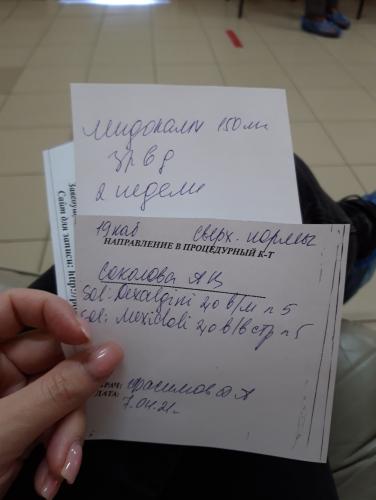 Мидокалм 150 мг
3р в д
2 недели
Сайт для записи: http:
19 каб сверх. нормы
НАПРАВЛЕНИЕ В ПРОЦЕДУРНЫЙ К-Т
Соколова А
Sol: Dexalgini 2,0 в/м n 5
Sol: Mexidoli 2,0 в/в стр n 5
ВРАЧ:
ДАТА: 7.04.21г